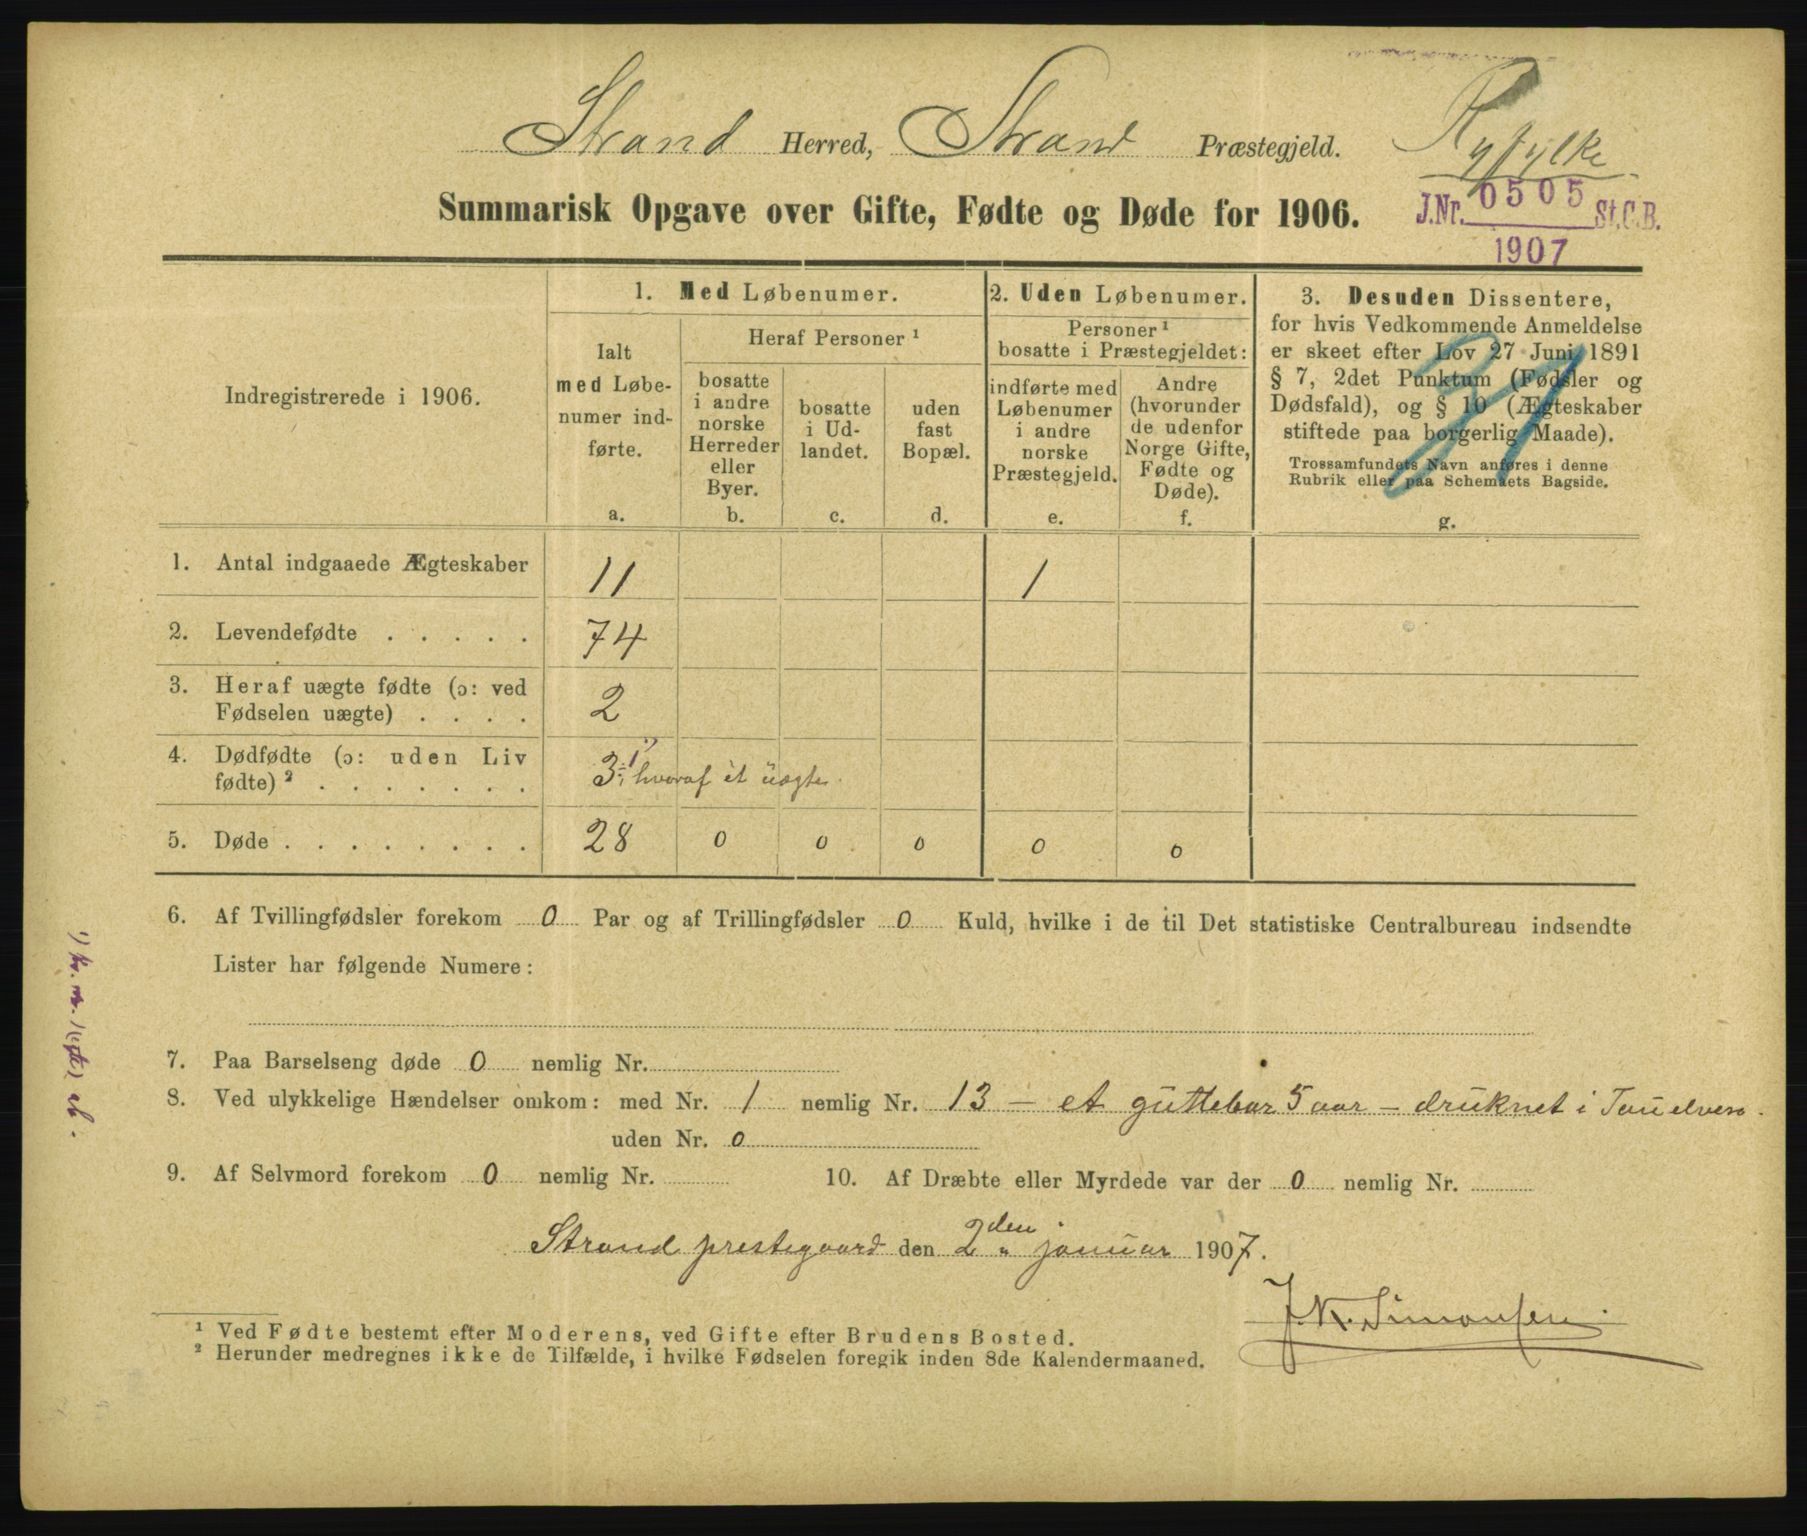 Strand Herred, Strand Præstegjeld. Ryfylke
Summarisk Opgave over Gifte, Fødte og Døde for 1906.
J.Nr. 0505 St.C.B.
1907
Indregistrerede i 1906.
1. Med Løbenumer.
Ialt
med Løbe-
numer ind-
førte.
a.
Heraf Personer ¹
bosatte
i andre
norske
Herreder
eller
Byer.
b.
bosatte
i Ud-
landet.
c.
uden
fast
Bopæl.
d.
2. Uden Løbenumer.
Personer ¹
bosatte i Præstegjeldet:
indførte med
Løbenumer
i andre
norske
Præstegjeld.
e.
Andre
(hvorunder
de udenfor
Norge Gifte,
Fødte og
Døde).
f.
3. Desuden Dissentere,
for hvis Vedkommende Anmeldelse
er skeet efter Lov 27 Juni 1891
§ 7, 2det Punktum (Fødsler og
Dødsfald), og § 10 (Ægteskaber
stiftede paa borgerlig Maade).
Trossamfundets Navn anføres i denne
Rubrik eller paa Schemaets Bagside.
g.
21
1. Antal indgaaede Ægteskaber 11 1
2. Levendefødte . . . . . 74
3. Heraf uægte fødte (ɔ: ved
Fødselen uægte) . . . . 2
4. Dødfødte (ɔ: uden Liv
fødte) ² . . . . . . . 3 ¹) hvoraf ét uægte.
5. Døde . . . . . . . . 28 0 0 0 0 0
6. Af Tvillingfødsler forekom 0 Par og af Trillingfødsler 0 Kuld, hvilke i de til Det statistiske Centralbureau indsendte
Lister har følgende Numere:
7. Paa Barselseng døde 0 nemlig Nr.
8. Ved ulykkelige Hændelser omkom: med Nr. 1 nemlig Nr. 13 – et guttebar 5 aar – druknet i Tauelven.
uden Nr. 0
9. Af Selvmord forekom 0 nemlig Nr.
10. Af Dræbte eller Myrdede var der 0 nemlig Nr.
Strand prestegaard den 2den januar 1907.
J. K. Simonsen
¹ Ved Fødte bestemt efter Moderens, ved Gifte efter Brudens Bosted.
² Herunder medregnes ikke de Tilfælde, i hvilke Fødselen foregik inden 8de Kalendermaaned.